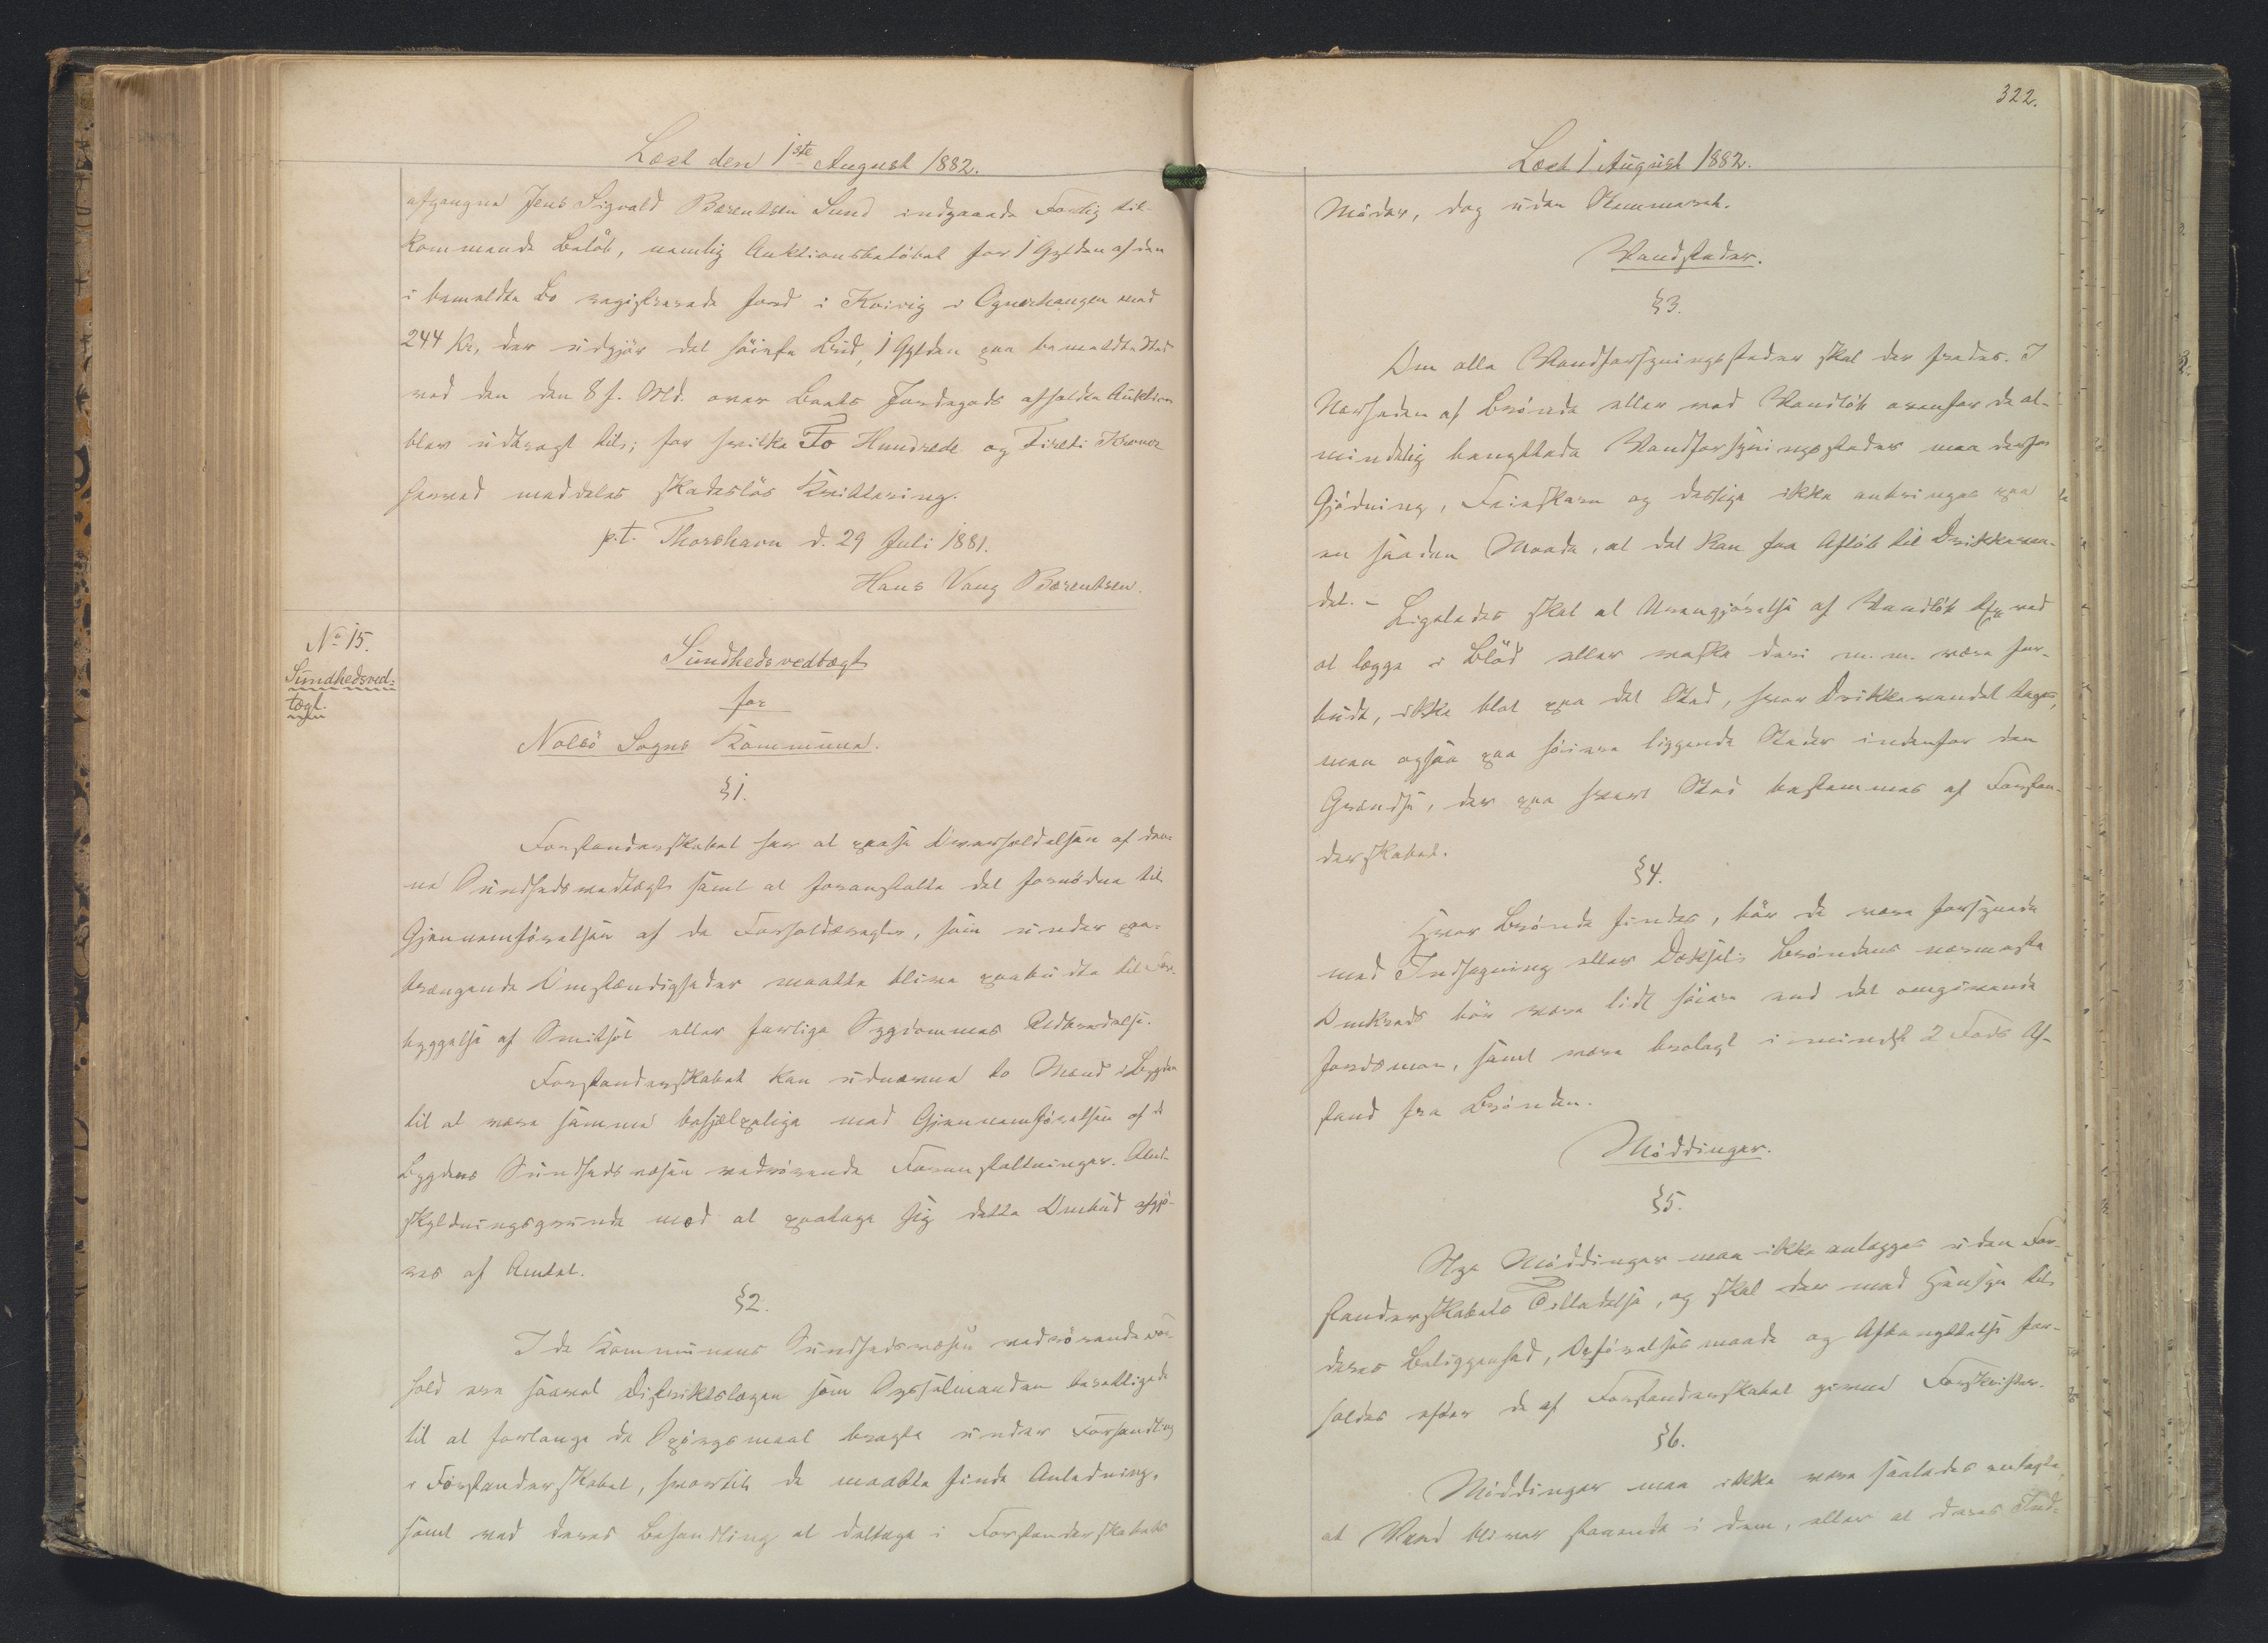 Læst den 1ste August 1882.
afgangne Jens Sigvald Berentsen Sund indgaaede Fartøi til-
kommende Beløb, nemlig Auktionsbeløbet for 1 Gylden af den
i bemeldte Bo registrerede Jord i Kvivig i Ognerhaugen med
244 Kr, der udgjör det höieste Bud, 1 Gylden paa bemeldte Sted
ved den den 8 f. Md. over Boets Jordegods afholdte Auktion
blev udbragt til; for hvilke To Hundrede og Fireti Kroner
herved meddeles skadeslös Kvittering.
p.t. Thorshavn d. 29 Juli 1881.
Hans Vang Berentsen.
No 15.
Sundhedsved-
tægt.
Sundhedsvedtægt
for
Nolsö Sogns Kommune.
§1.
Forstanderskabet har at paase Overholdelsen af den-
ne Sundhedsvedtægt samt at foranstalte det fornödne til
Gjennemförelsen af de Forholdsregler, som under paa-
trængende Omstændigheder maatte blive paabudte til Fore-
byggelse af Smitsot eller farlige Sygdommes Udbredelse.
Forstanderskabet kan udnævne to Mænd i Bygden
til at være samme behjælpelige med Gjennemförelsen af de
Bygdens Sundhedsvæsen vedrörende Foranstaltninger. Und-
skyldningsgrunde mod at paatage sig dette Ombud afgjö-
res af Amtet.
§2.
I de Kommunens Sundhedsvæsen vedrörende For-
hold ere saavel Distriktslægen som Sysselmanden berettigede
til at forlange de Spörgsmaal bragte under Forhandling
i Forstanderskabet, hvortil de maatte finde Anledning,
samt ved deres Behandling at deltage i Forstanderskabets
322.
Læst 1 August 1882.
Möder, dog uden Stemmeret.
Vandsteder.
§3.
Om alle Vandforsyningssteder skal der fredes. I
Nærheden af Brönde eller ved Vandlöb ovenfor de al-
mindelig benyttede Vandforsyningssteder maa derfor
Gjödning, Feieskarn og deslige ikke anbringes paa
en saadan Maade, at det kan faa Aflöb til Drikkevan-
det. - Ligeledes skal al Urengjörelse af Vandlöb f.Ex ved
at lægge i Blöd eller vaske deri m.m. være for-
budt, ikke blot paa det Sted, hvor Drikkevandet tages,
men ogsaa paa höiere liggende Steder indenfor den
Grændse, der paa hvert Sted bestemmes af Forstan-
derskabet.
§4.
Hvor Brönde findes, bör de være forsynede
med Indhegning eller Dæksel; Bröndens nærmeste
Omkreds bör være lidt höiere end det omgivende
Jordsmon, samt være brolagt i mindst 2 Fods Af-
stand fra Brönden.
Möddinger.
§5.
Nye Möddinger maa ikke anlægges uden For-
standerskabets Tilladelse, og skal der med Hensyn til
deres Beliggenhed, Opförelsesmaade og Afbenyttelse for-
holdes efter de af Forstanderskabet givne Forskrifter.
§6.
Möddinger maa ikke være saaledes anlagte,
at Vand bliver staaende i dem, eller at deres Ind-